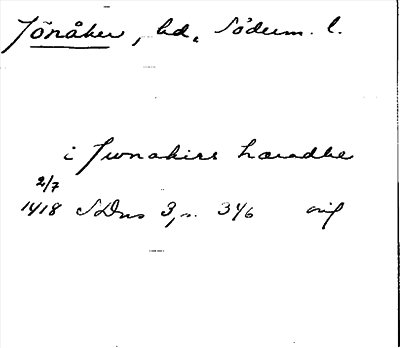 Jönåker, hd, Söderm. l.
i Jwnakirs hæradhe
2/7
1418 SDns 3, s. 346 orig